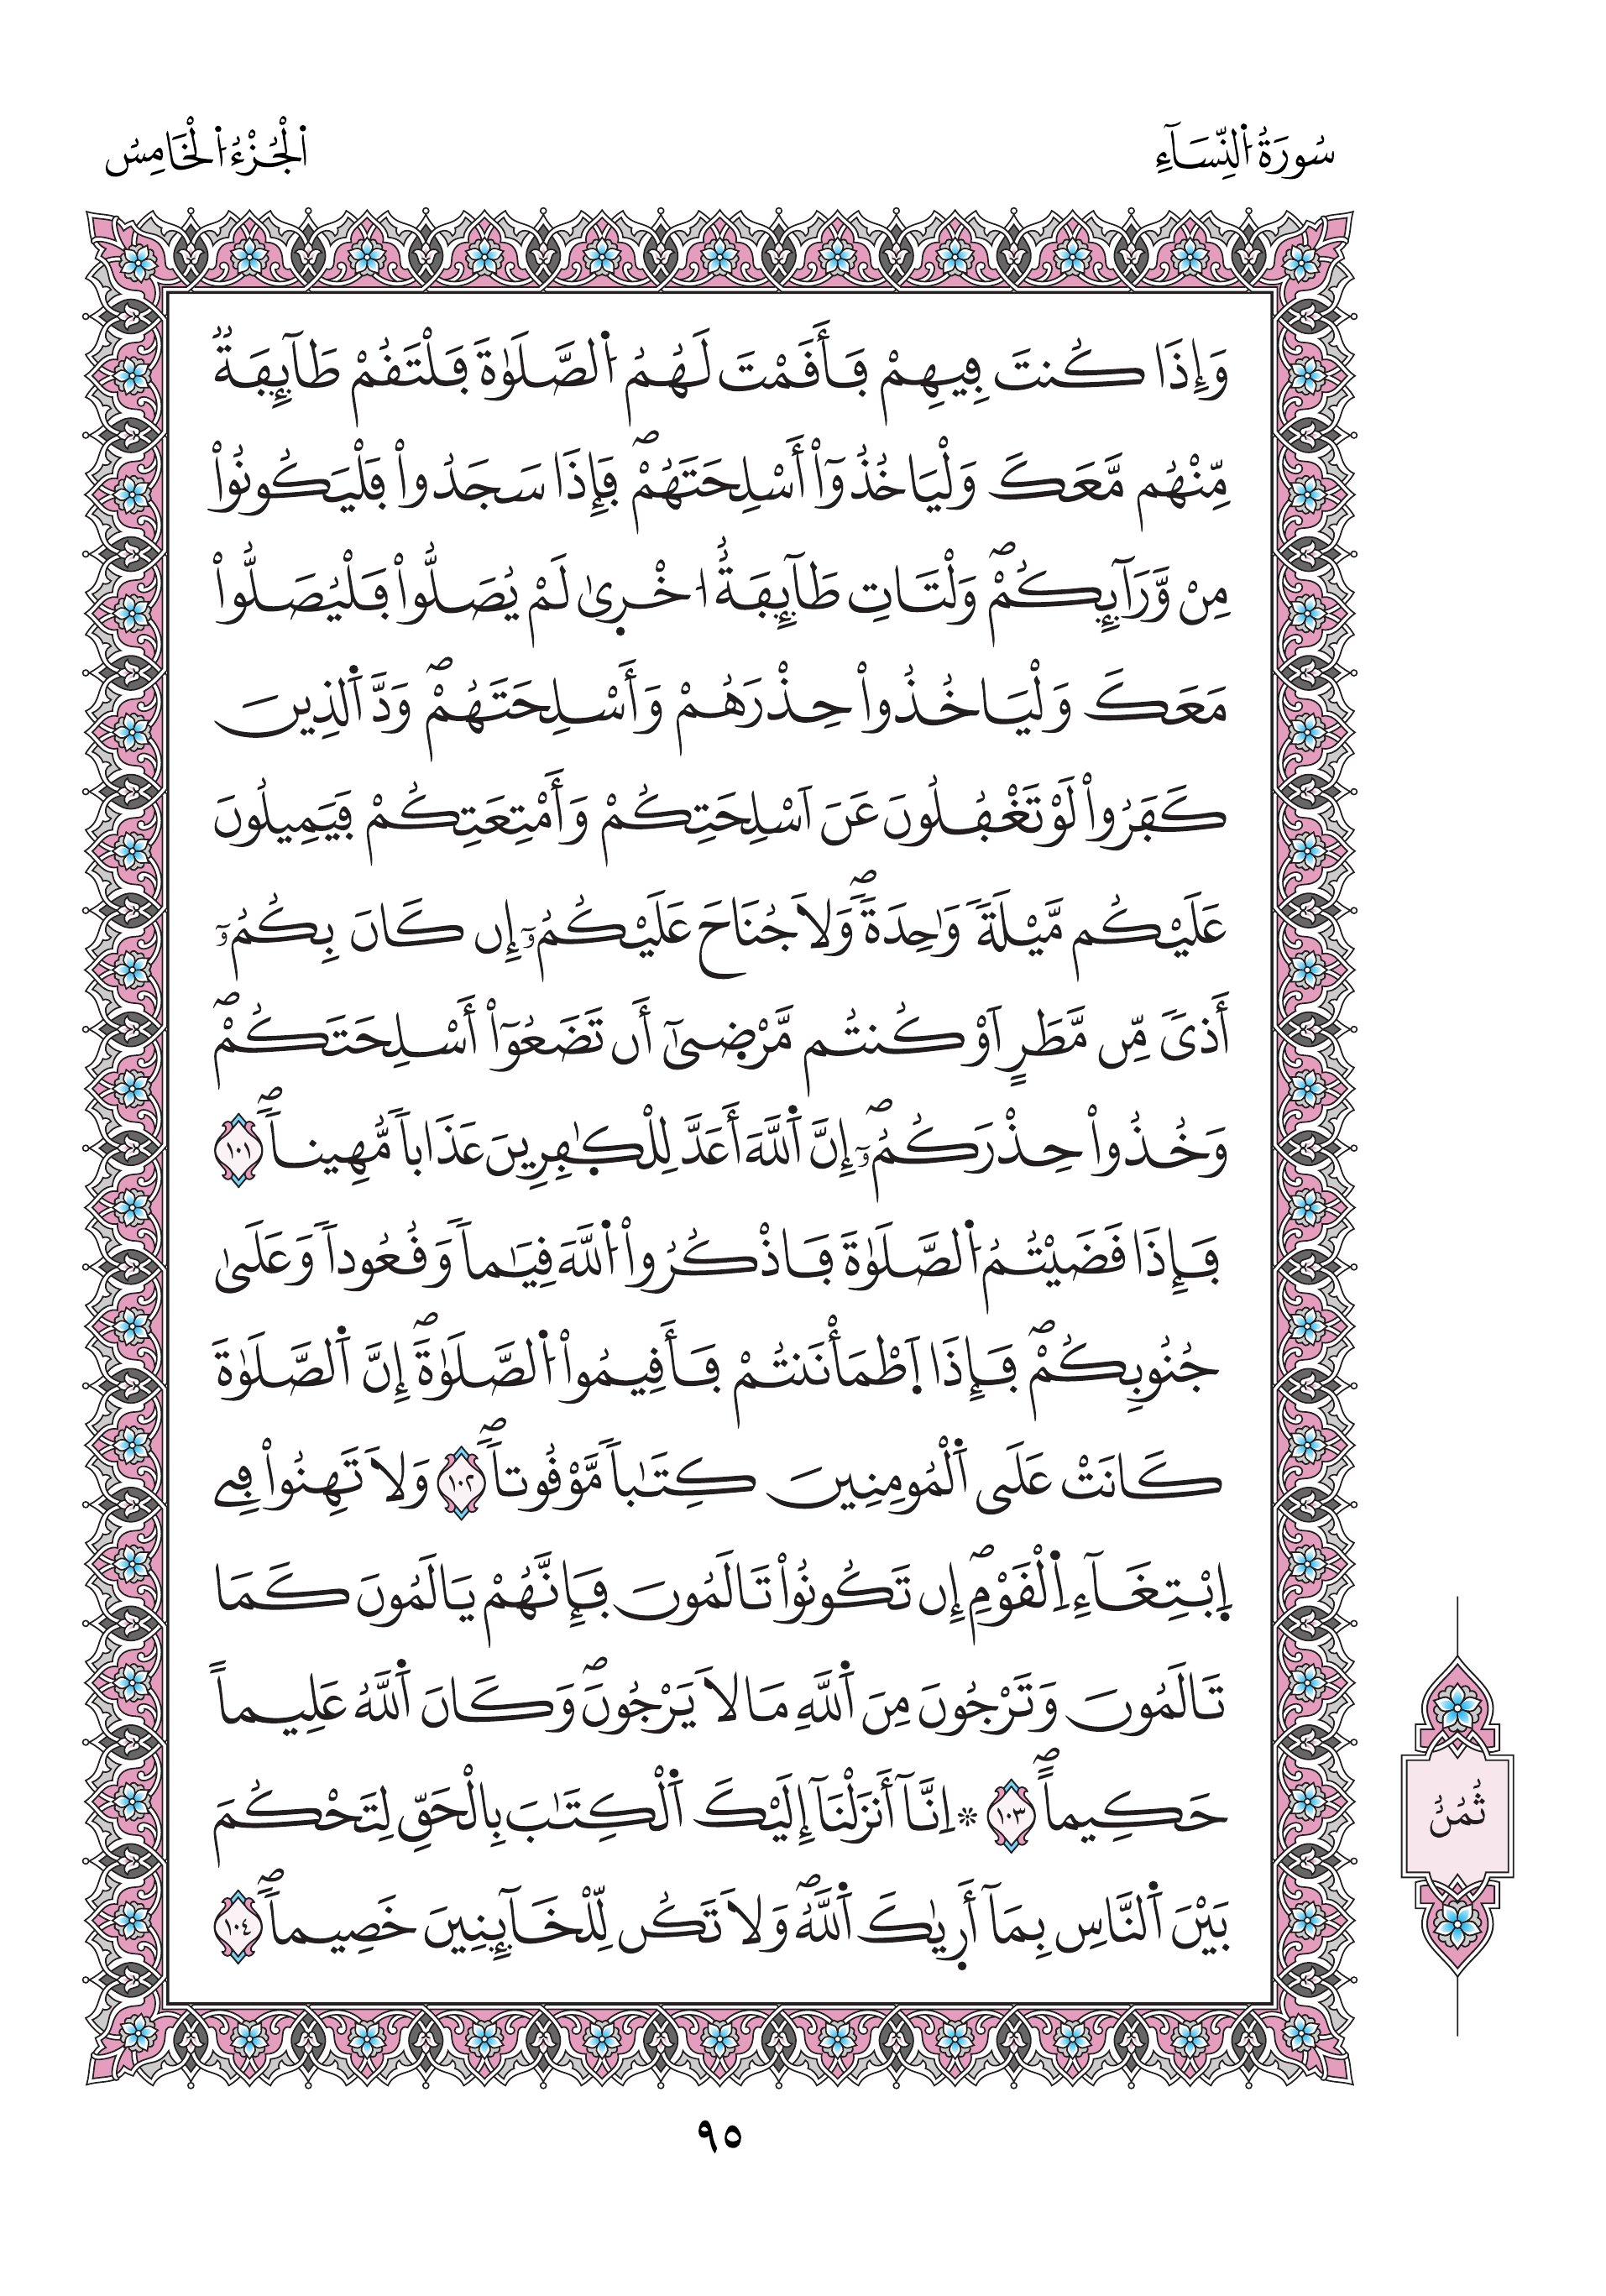 سُورَةُ اُ۬لنِّسَآءِ
اَ۬لْجُزْءُ اُ۬لْخَامِسُ
وَإِذَا كُنتَ فِيهِمْ فَأَقَمْتَ لَهُمُ اُ۬لصَّلَوٰةَ فَلْتَقُمْ طَآئِفَةٞ
مِّنْهُم مَّعَكَ وَلْيَاخُذُوٓاْ أَسْلِحَتَهُمْۖ فَإِذَا سَجَدُواْ فَلْيَكُونُواْ
مِنْ وَّرَآئِكُمْۖ وَلْتَاتِ طَآئِفَةٌ ا۟خْر۪يٰ لَمْ يُصَلُّواْ فَلْيُصَلُّواْ
مَعَكَ وَلْيَاخُذُواْ حِذْرَهُمْ وَأَسْلِحَتَهُمْۖ وَدَّ اَ۬لذِينَ
كَفَرُواْ لَوْ تَغْفُلُونَ عَنَ اَسْلِحَتِكُمْ وَأَمْتِعَتِكُمْ فَيَمِيلُونَ
عَلَيْكُم مَّيْلَةٗ وَٰحِدَةٗۖ وَلَا جُنَاحَ عَلَيْكُمُۥٓ إِن كَانَ بِكُمُۥٓ
أَذيٗ مِّن مَّطَرٍ اَوْ كُنتُم مَّرْض۪يٰٓ أَن تَضَعُوٓاْ أَسْلِحَتَكُمْۖ
وَخُذُواْ حِذْرَكُمُۥٓۖ إِنَّ اَ۬للَّهَ أَعَدَّ لِلْكٰ۪فِرِينَ عَذَاباٗ مُّهِيناٗۖ ١٠١
فَإِذَا قَضَيْتُمُ اُ۬لصَّلَوٰةَ فَاذْكُرُواْ اُ۬للَّهَ قِيَٰماٗ وَقُعُوداٗ وَعَلَيٰ
جُنُوبِكُمْۖ فَإِذَا اَ۪طْمَأْنَنتُمْ فَأَقِيمُواْ اُ۬لصَّلَوٰةَۖ إِنَّ اَ۬لصَّلَوٰةَ
كَانَتْ عَلَي اَ۬لْمُومِنِينَ كِتَٰباٗ مَّوْقُوتاٗۖ ١٠٢ وَلَا تَهِنُواْ فِي
اِ۪بْتِغَآءِ اِ۬لْقَوْمِۖ إِن تَكُونُواْ تَالَمُونَ فَإِنَّهُمْ يَالَمُونَ كَمَا
تَالَمُونَ وَتَرْجُونَ مِنَ اَ۬للَّهِ مَا لَا يَرْجُونَۖ وَكَانَ اَ۬للَّهُ عَلِيماً
حَكِيماًۖ ١٠٣ ۞ اِنَّآ أَنزَلْنَآ إِلَيْكَ اَ۬لْكِتَٰبَ بِالْحَقِّ لِتَحْكُمَ
بَيْنَ اَ۬لنَّاسِ بِمَآ أَر۪يٰكَ اَ۬للَّهُۖ وَلَا تَكُن لِّلْخَآئِنِينَ خَصِيماٗۖ ١٠٤
ثُمُنٌ
٩٥